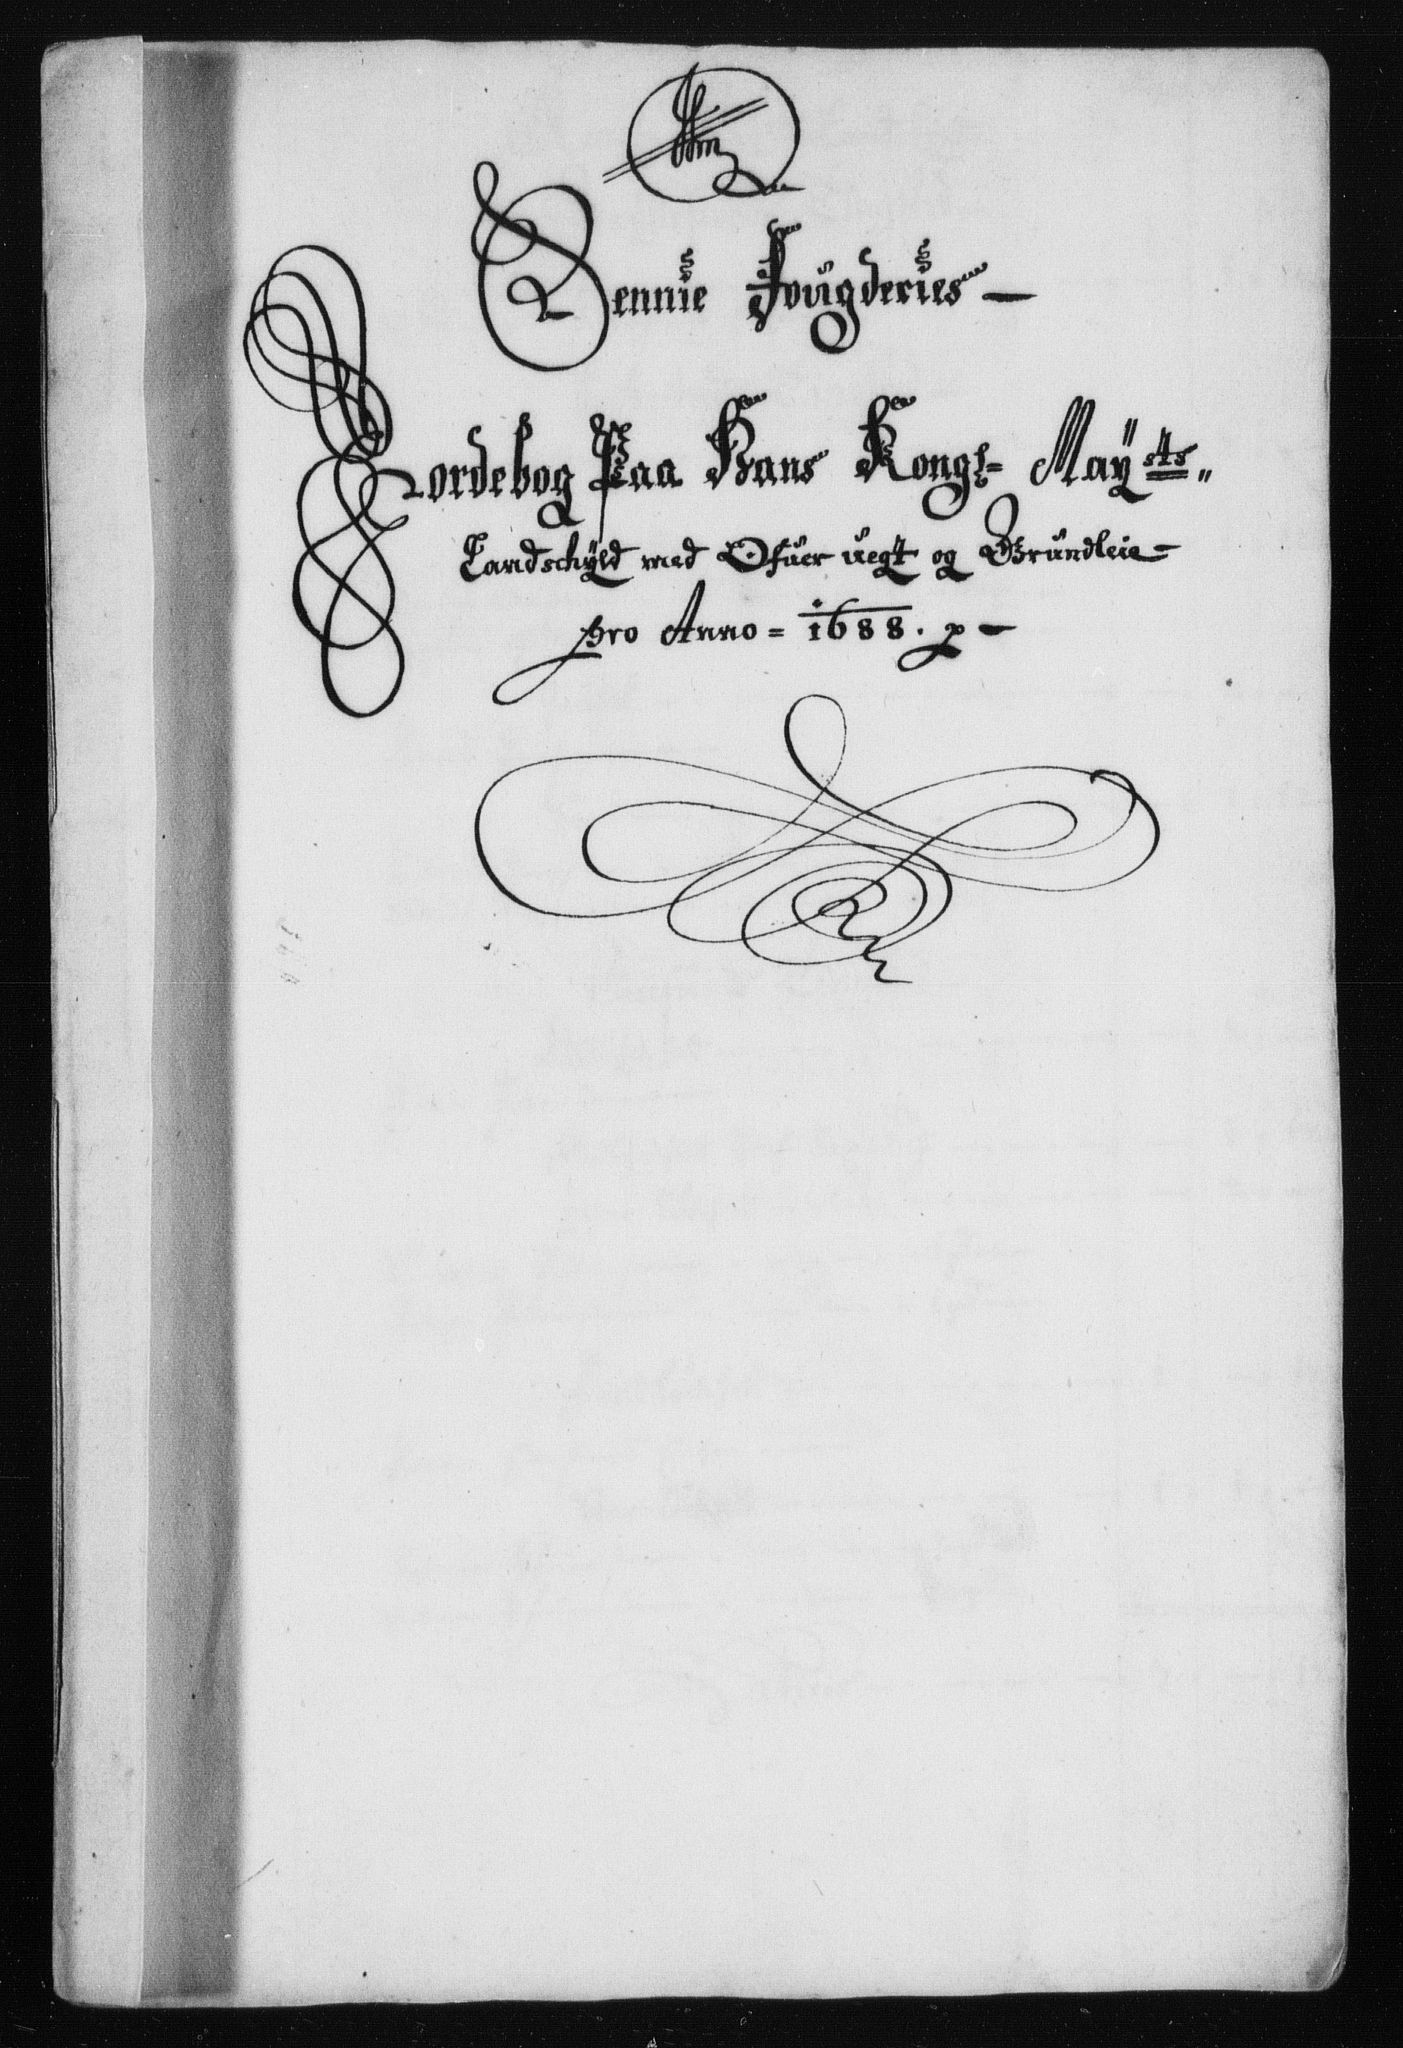 Sennie Fougderies
Jordebog Paa Hans Kongl= Mayˢᵗˢ
Landschyld med Ofuer uegt og Grundleie=
pro Anno = 1688.